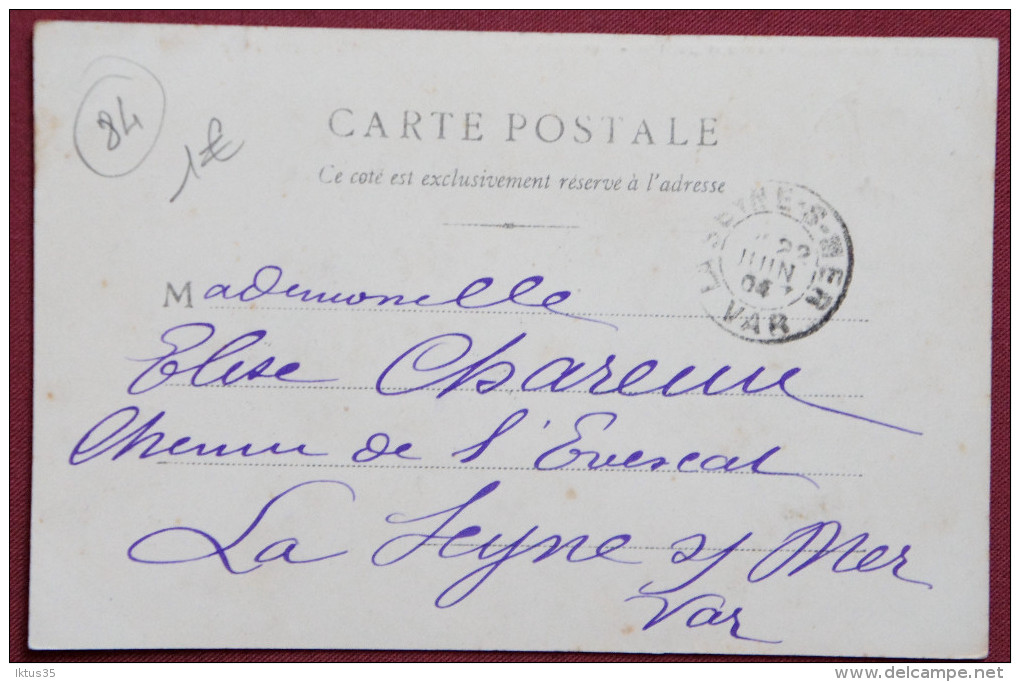 84
1€
CARTE POSTALE
Ce coté est exclusivement réservé à l'adresse
LA SEYNE-S-MER
22
JUIN
04
VAR
Mademoiselle
Elise
Chemin de l'Evescat
La Seyne s/ Mer
Var
iktus35
www.delcampe.net